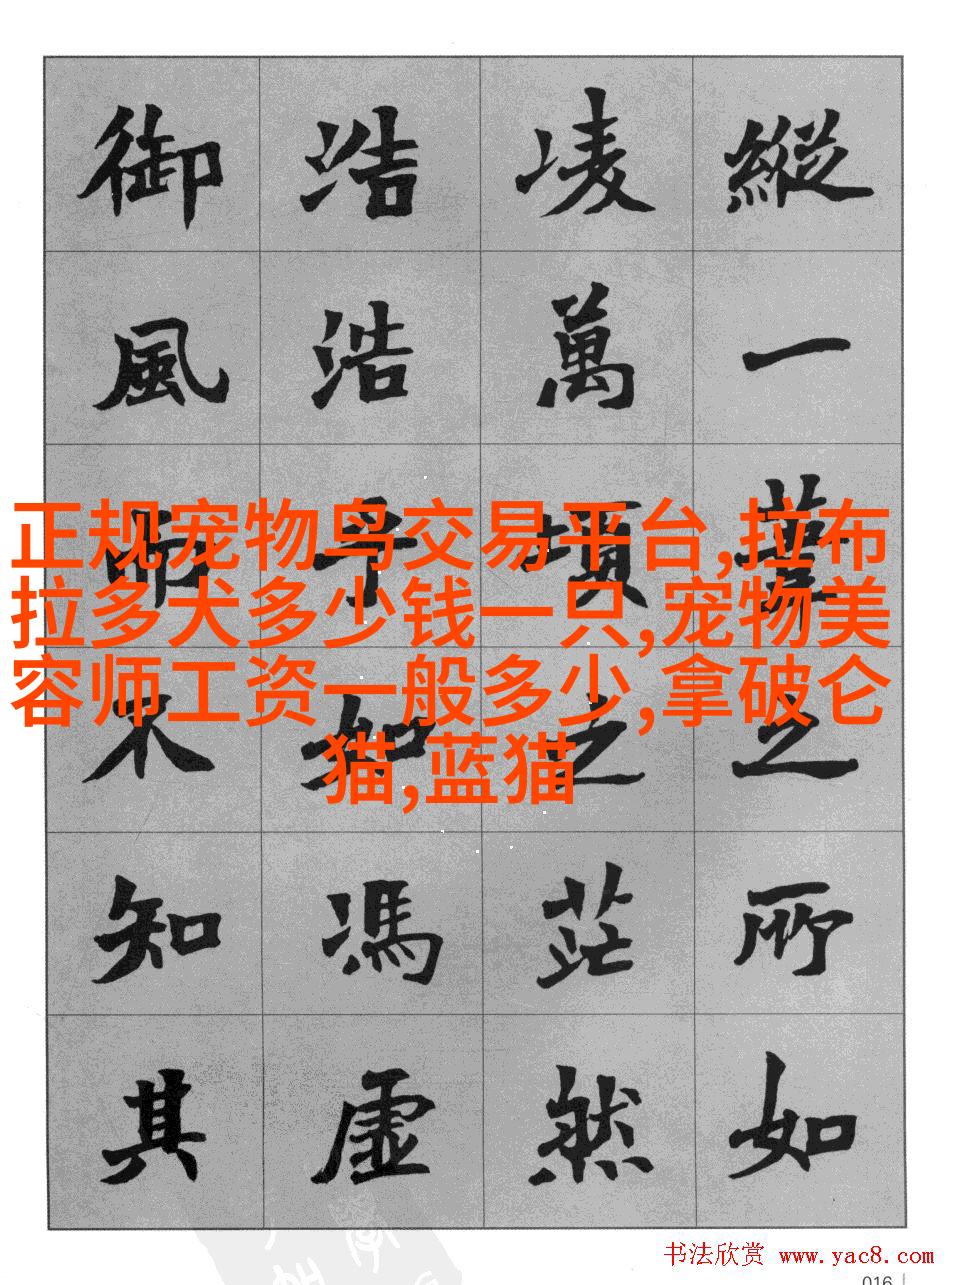 縱一葦之所如
凌萬頃之茫然
浩浩乎如馮虛
御風而不知其
正规宠物鸟交易平台,拉布
拉多犬多少钱一只,宠物美
容师工资一般多少,拿破仑
猫,蓝猫
书法欣赏 www.yac8.com
016